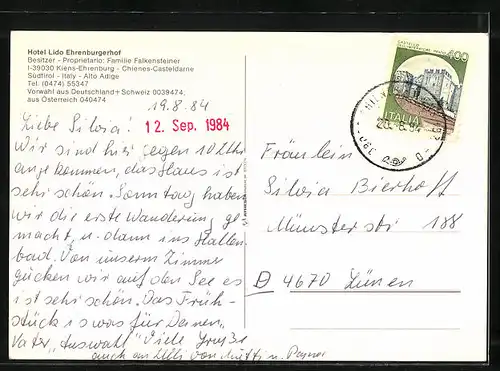 Hotel Lido Ehrenburgerhof
Besitzer - Proprietario: Familie Falkensteiner
I-39030 Kiens-Ehrenburg - Chienes-Casteldarne
Südtirol - Italy - Alto Adige
Tel. (0474) 55347
Vorwahl aus Deutschland + Schweiz 0039474,
aus Österreich 040474.
19.8.84
Liebe Silvia!
12. Sep. 1984
Wir sind hier gegen 10 Uhr
angekommen, das Haus ist
sehr schön. Sonntag haben
wir die erste Wanderung ge-
macht, u. dann ins Hallen-
bad. Von unserm Zimmer
gucken wir auf den See es
ist sehr schön. Das Früh-
stück is was für Deinen
Vater, "Auswahl" Viele Grüße
auch an Ulli von Mutti u. Papa
400
ITALIA
Fräulein
Silvia Bierhoff
Münsterstr 188
D 4670 Lünen